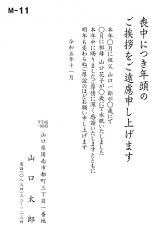 M-11
喪中につき年頭の
ご挨拶をご遠慮申し上げます
本年〇月に祖父 山口一郎が〇歳にて
〇月に祖母 山口花子が〇歳にて永眠いたしました
本年中に賜りましたご厚情に深く感謝いたしますとともに
明年も変わらぬご厚誼のほどお願い申し上げます
令和五年十一月
山口県周南市都町三丁目一番地
山口太郎